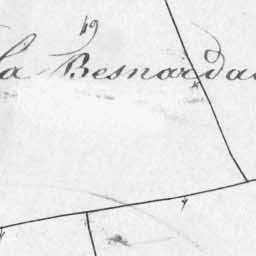 49
la Besnarda